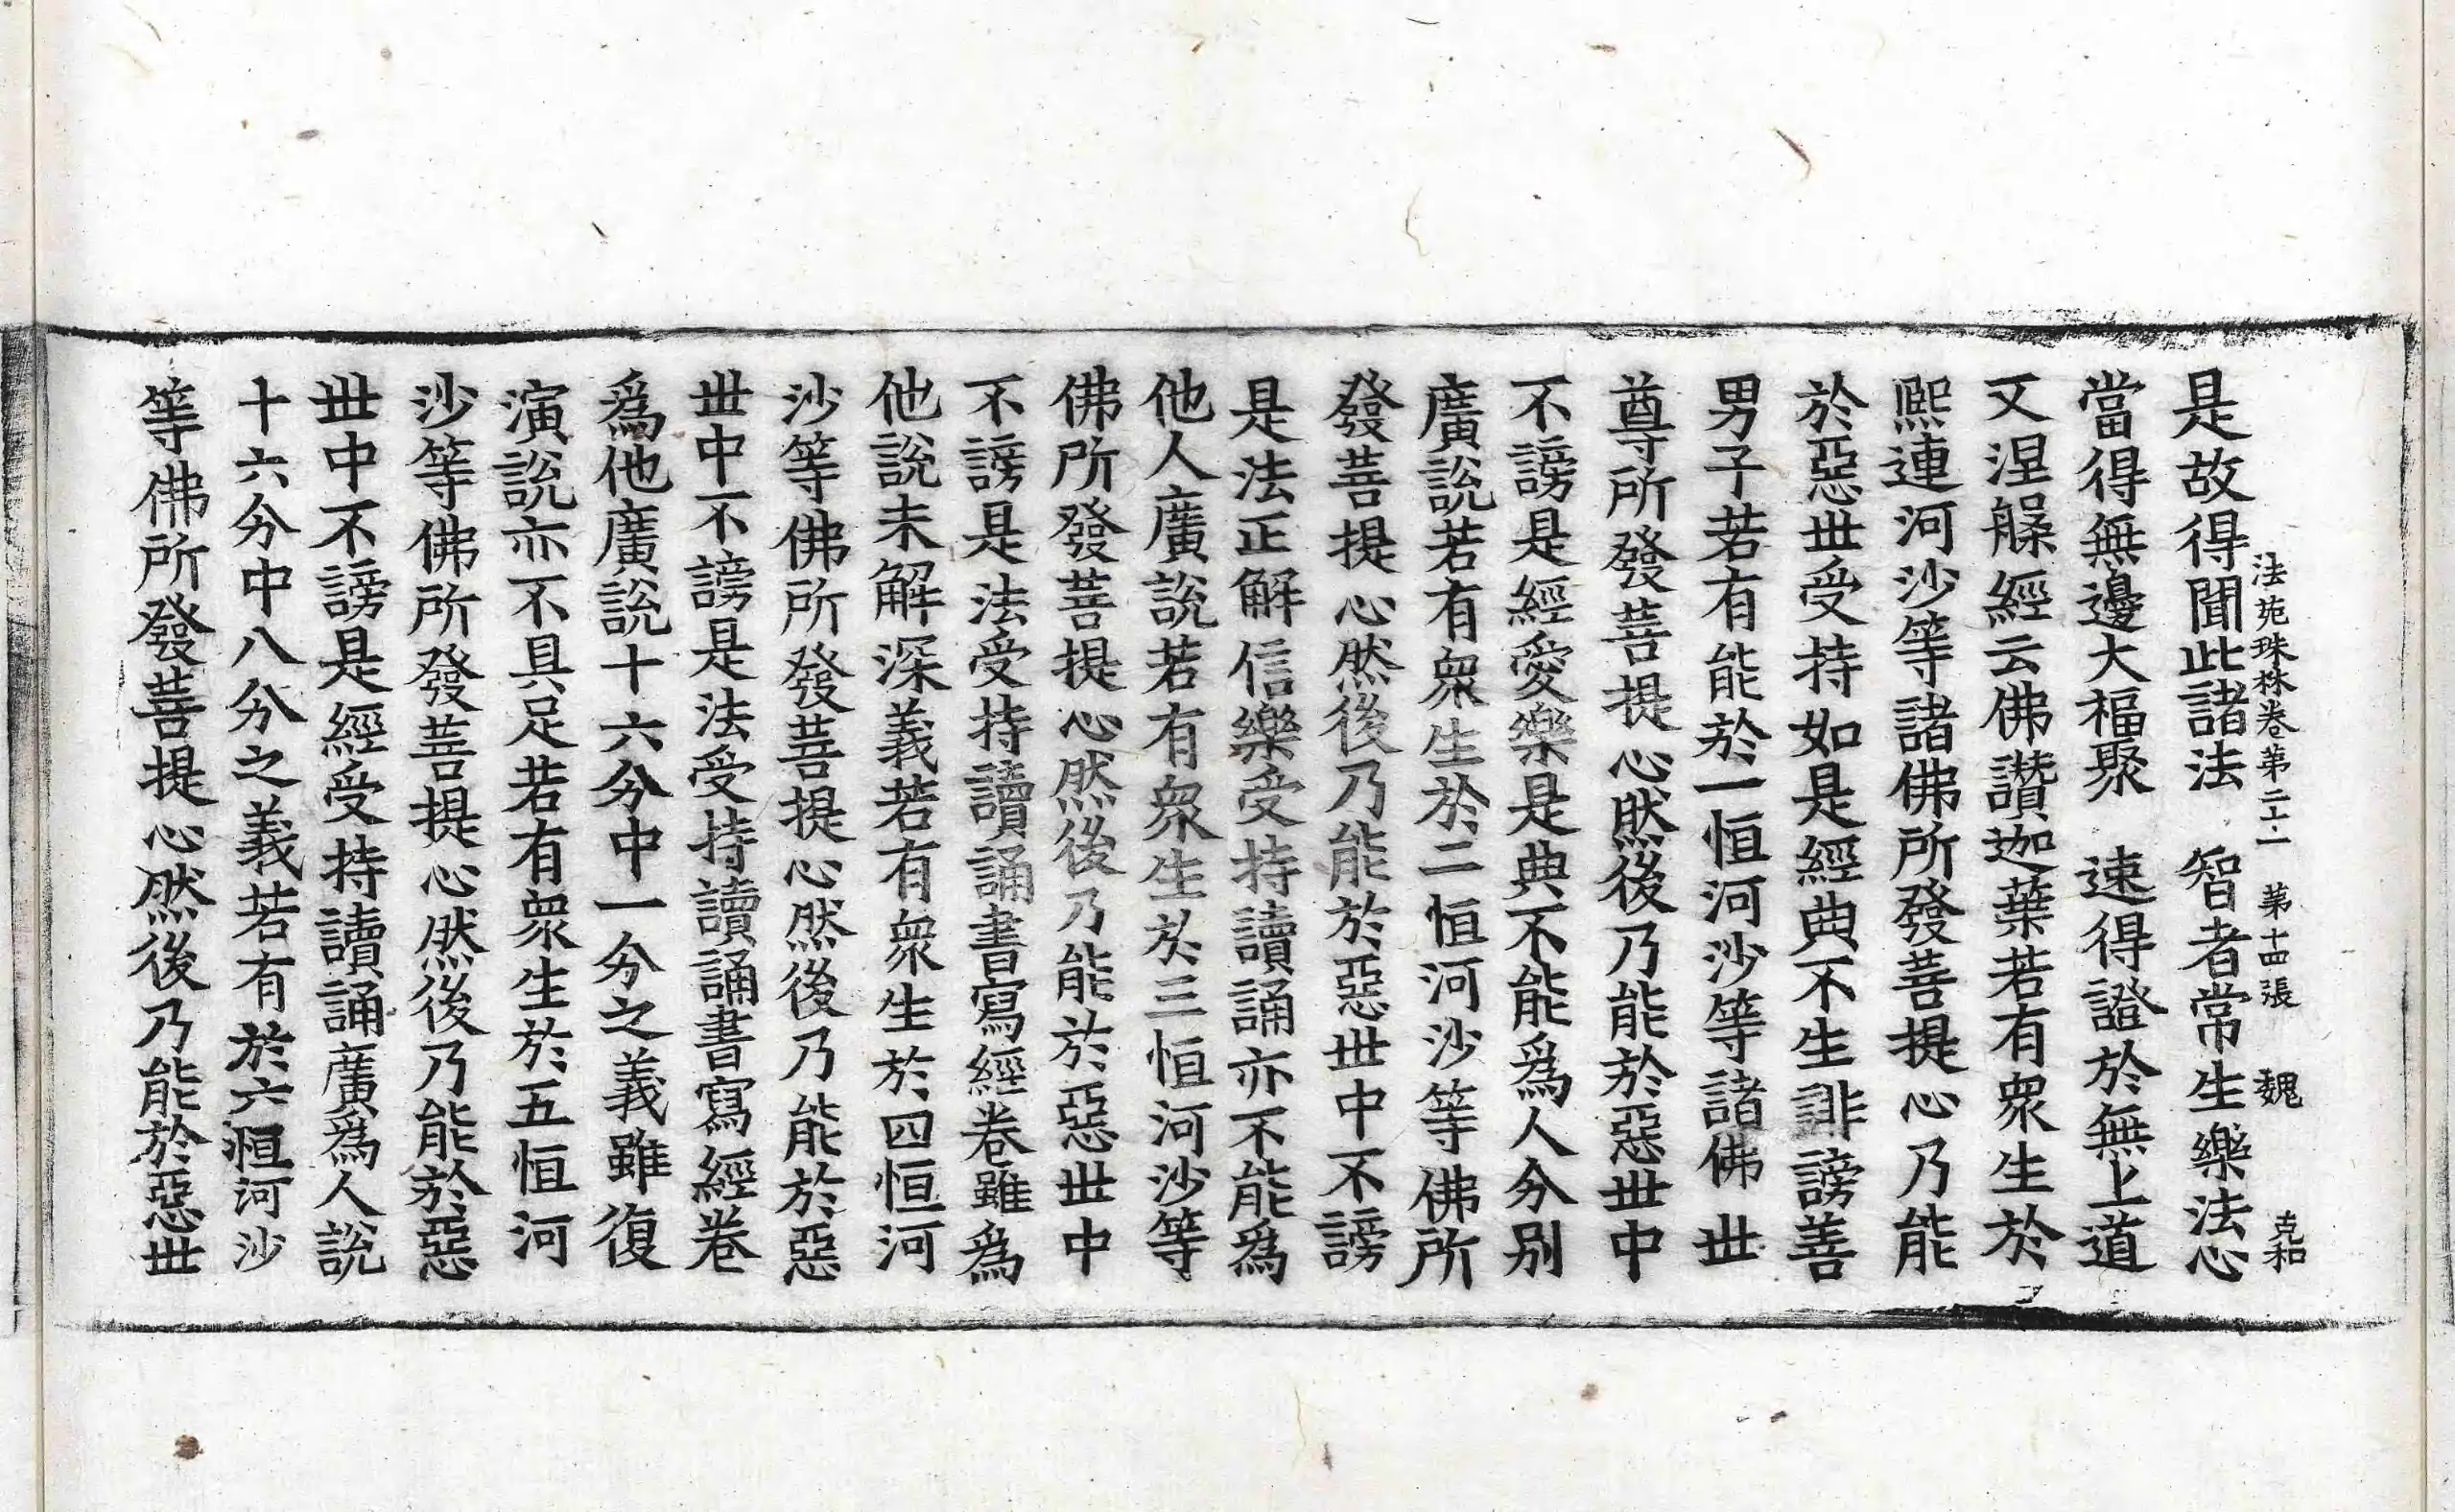 法苑珠林卷第二十一 第十四張 魏 克和
是故得聞此諸法 智者常生樂法心
當得無邊大福聚 速得證於無上道
又涅槃經云佛讚迦葉若有衆生於
熙連河沙等諸佛所發菩提心乃能
於惡世受持如是經典不生誹謗善
男子若有能於一恒河沙等諸佛世
尊所發菩提心然後乃能於惡世中
不謗是經愛樂是典不能爲人分別
廣說若有衆生於二恒河沙等佛所
發菩提心然後乃能於惡世中不謗
是法正解信樂受持讀誦亦不能爲
他人廣說若有衆生於三恒河沙等
佛所發菩提心然後乃能於惡世中
不謗是法受持讀誦書寫經卷雖爲
他說未解深義若有衆生於四恒河
沙等佛所發菩提心然後乃能於惡
世中不謗是法受持讀誦書寫經卷
爲他廣說十六分中一分之義雖復
演說亦不具足若有衆生於五恒河
沙等佛所發菩提心然後乃能於惡
世中不謗是經受持讀誦廣爲人說
十六分中八分之義若有於六恒河沙
等佛所發菩提心然後乃能於惡世